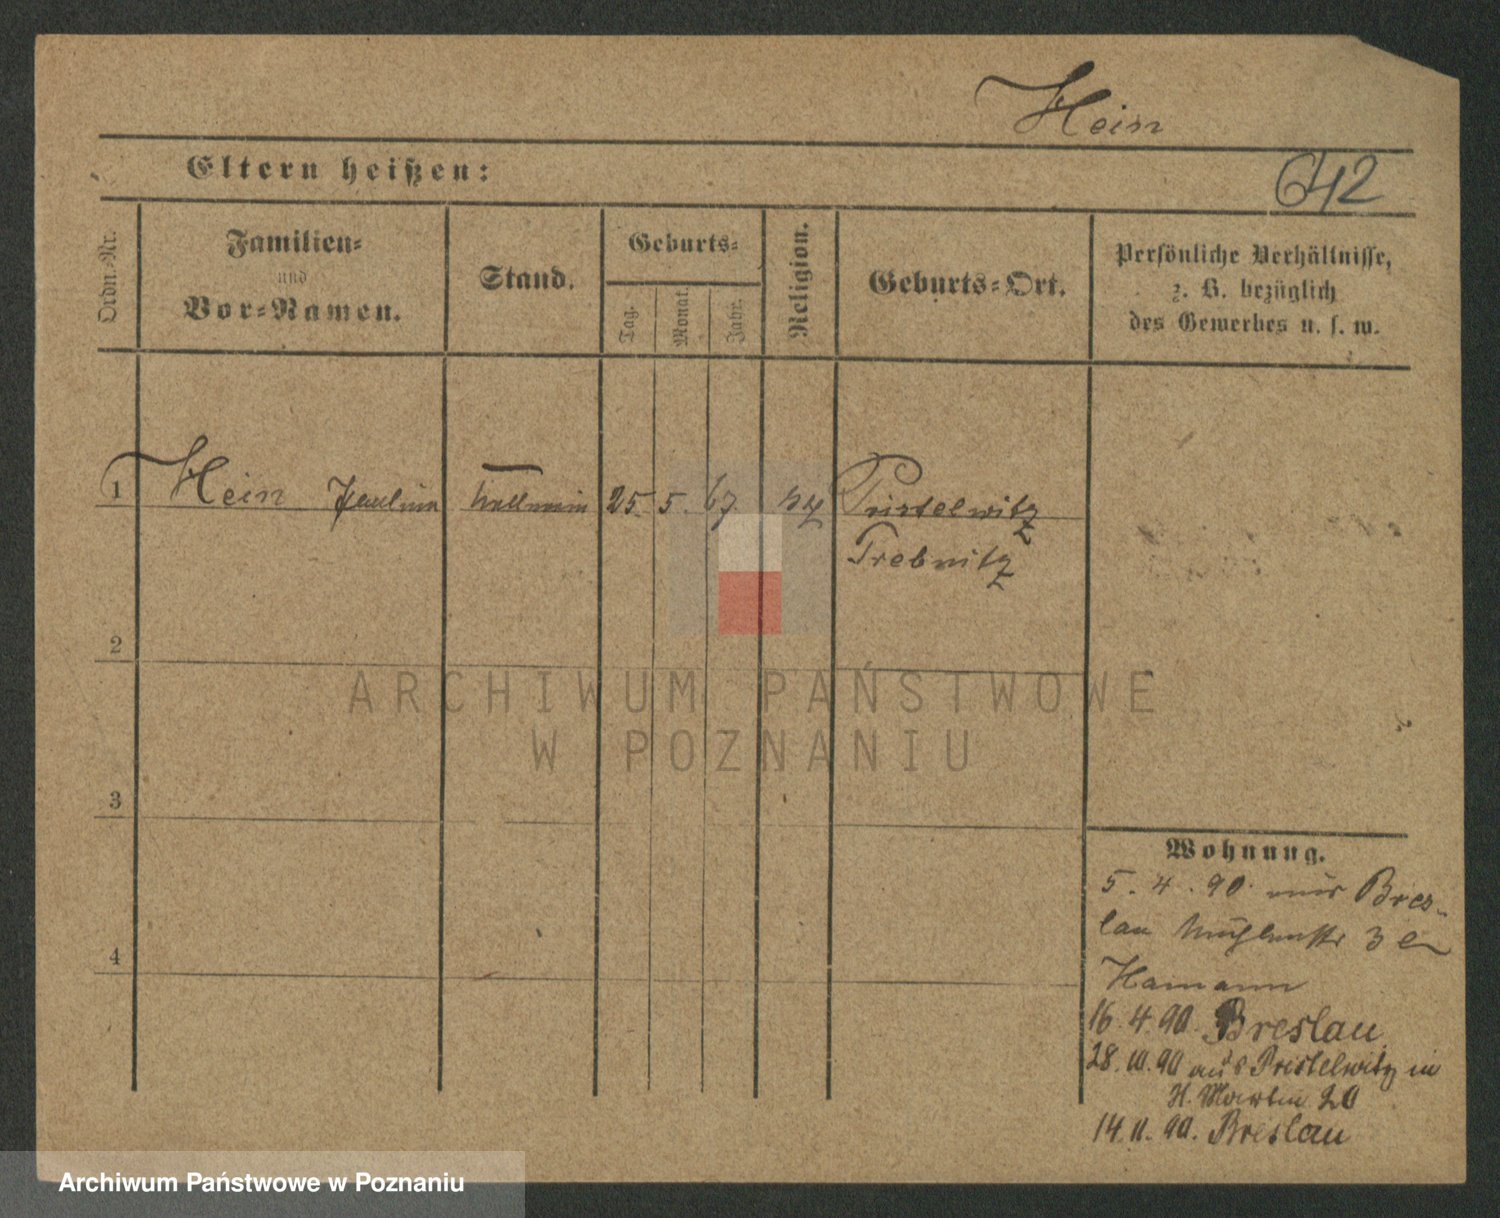 Hein
Eltern heißen:
642
Ordn.-Nr.
Familien-
und
Vor-Namen.
Stand.
Geburts-
Tag.
Monat.
Jahr.
Religion.
Geburts-Ort.
Persönliche Verhältnisse,
z. B. bezüglich
des Gewerbes u. s. w.
1 Hein Paulina 25. 5. 67. Pristelwitz
Trebnitz
2
3
4
Wohnung.
5. 4. 90. aus Bres-
lau Mühlenstr 3
Hamann
16. 4. 90. Breslau
28. 10. 90 aus Pristelwitz in
St. Martin 20
14. 11. 90. Breslau
ARCHIWUM PAŃSTWOWE
W POZNANIU
Archiwum Państwowe w Poznaniu